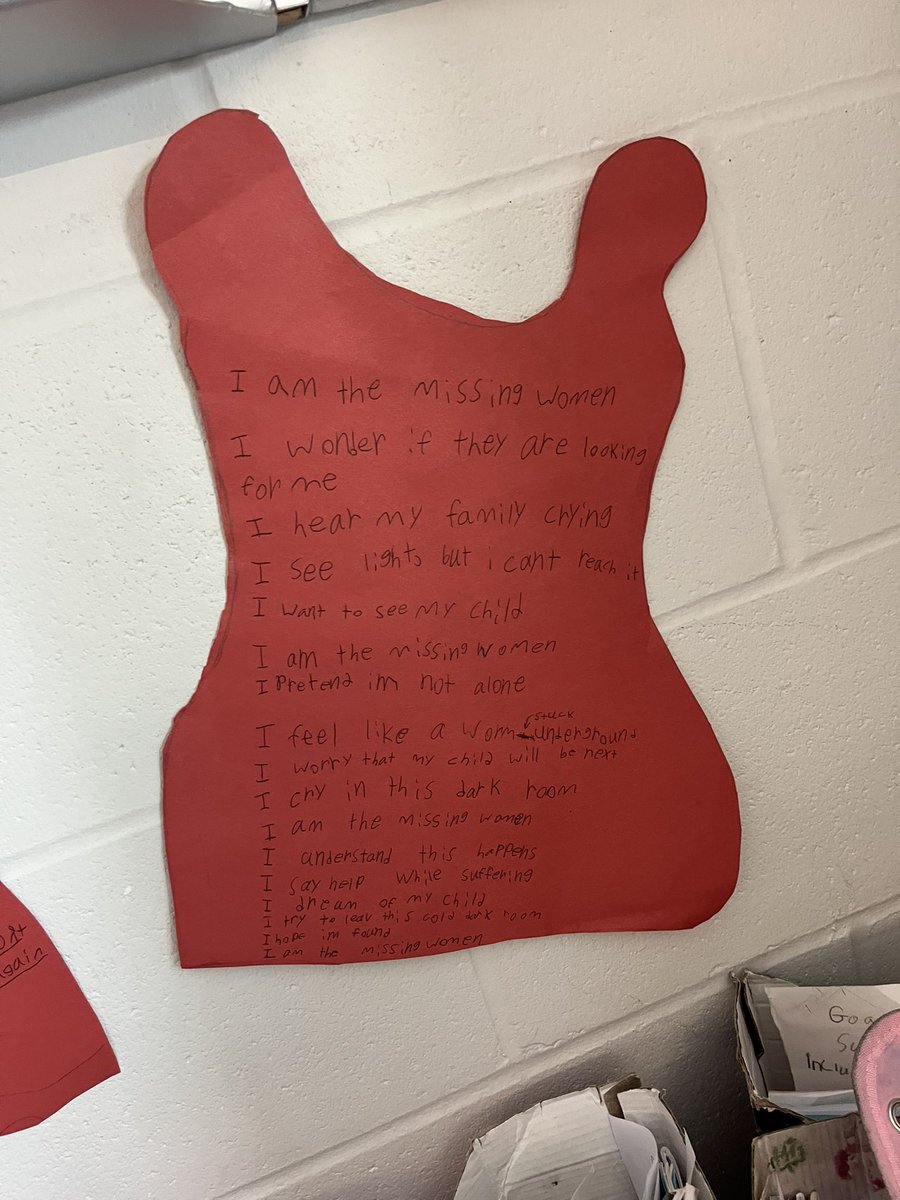 I am the missing women
I wonder if they are looking
for me
I hear my family crying
I see lights but i cant reach it
I want to see my child
I am the missing women
I Pretend im not alone
I feel like a worm stuck underground
I worry that my child will be next
I cry in this dark room
I am the missing women
I understand this happens
I say help while suffering
I dream of my child
I try to leav this cold dark room
I hope im found
I am the missing women
again
Goa
Su
Inclu